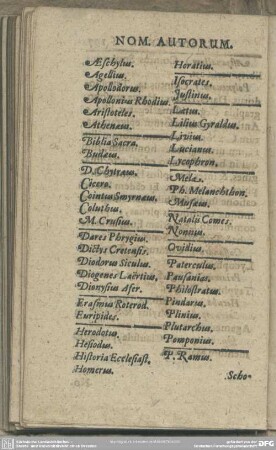 NOM. AUTORUM.
Æschylus.
Agellius.
Apollodorus.
Apollonius Rhodius.
Aristoteles.
Athenæus.
Biblia Sacra.
Budæus.
D. Chytræus.
Cicero.
Cointus Smyrnæus.
Coluthus.
M. Crusius.
Dares Phrygius.
Dictys Cretensis.
Diodorus Siculus.
Diogenes Laërtius.
Dionysius Afer.
Erasmus Roterod.
Euripides.
Herodotus.
Hesiodus.
Historia Ecclesiast.
Homerus.
Horatius.
Isocrates.
Justinus.
Lætus.
Lilius Gyraldus.
Livius.
Lucianus.
Lycophron.
Mela.
Ph. Melanchthon.
Musæus.
Natalis Comes.
Nonnus.
Ovidius.
Paterculus.
Pausanias.
Philostratus.
Pindarus.
Plinius.
Plutarchus.
Pomponius.
P. Ramus.
Scho-